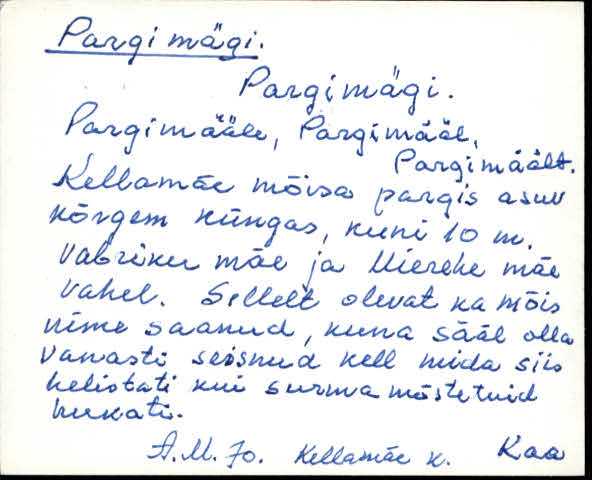 Pargimägi.
Pargimägi.
Pargimääle, Pargimääl,
Pargimäält.
Kellamäe mõisa pargis asuv
kõrgem küngas, kuni 10 m.
Vabriku mäe ja Vierehe mäe
vahel. Sellelt olevat ka mõis
nime saanud, kuna sääl olla
vanasti seisnud kell mida siis
helistati kui surma mõstetuid
hukati.
A.M. Jo. Kellamäe k. Kaa